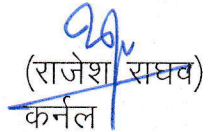 (राजेश राघव)
कर्नल